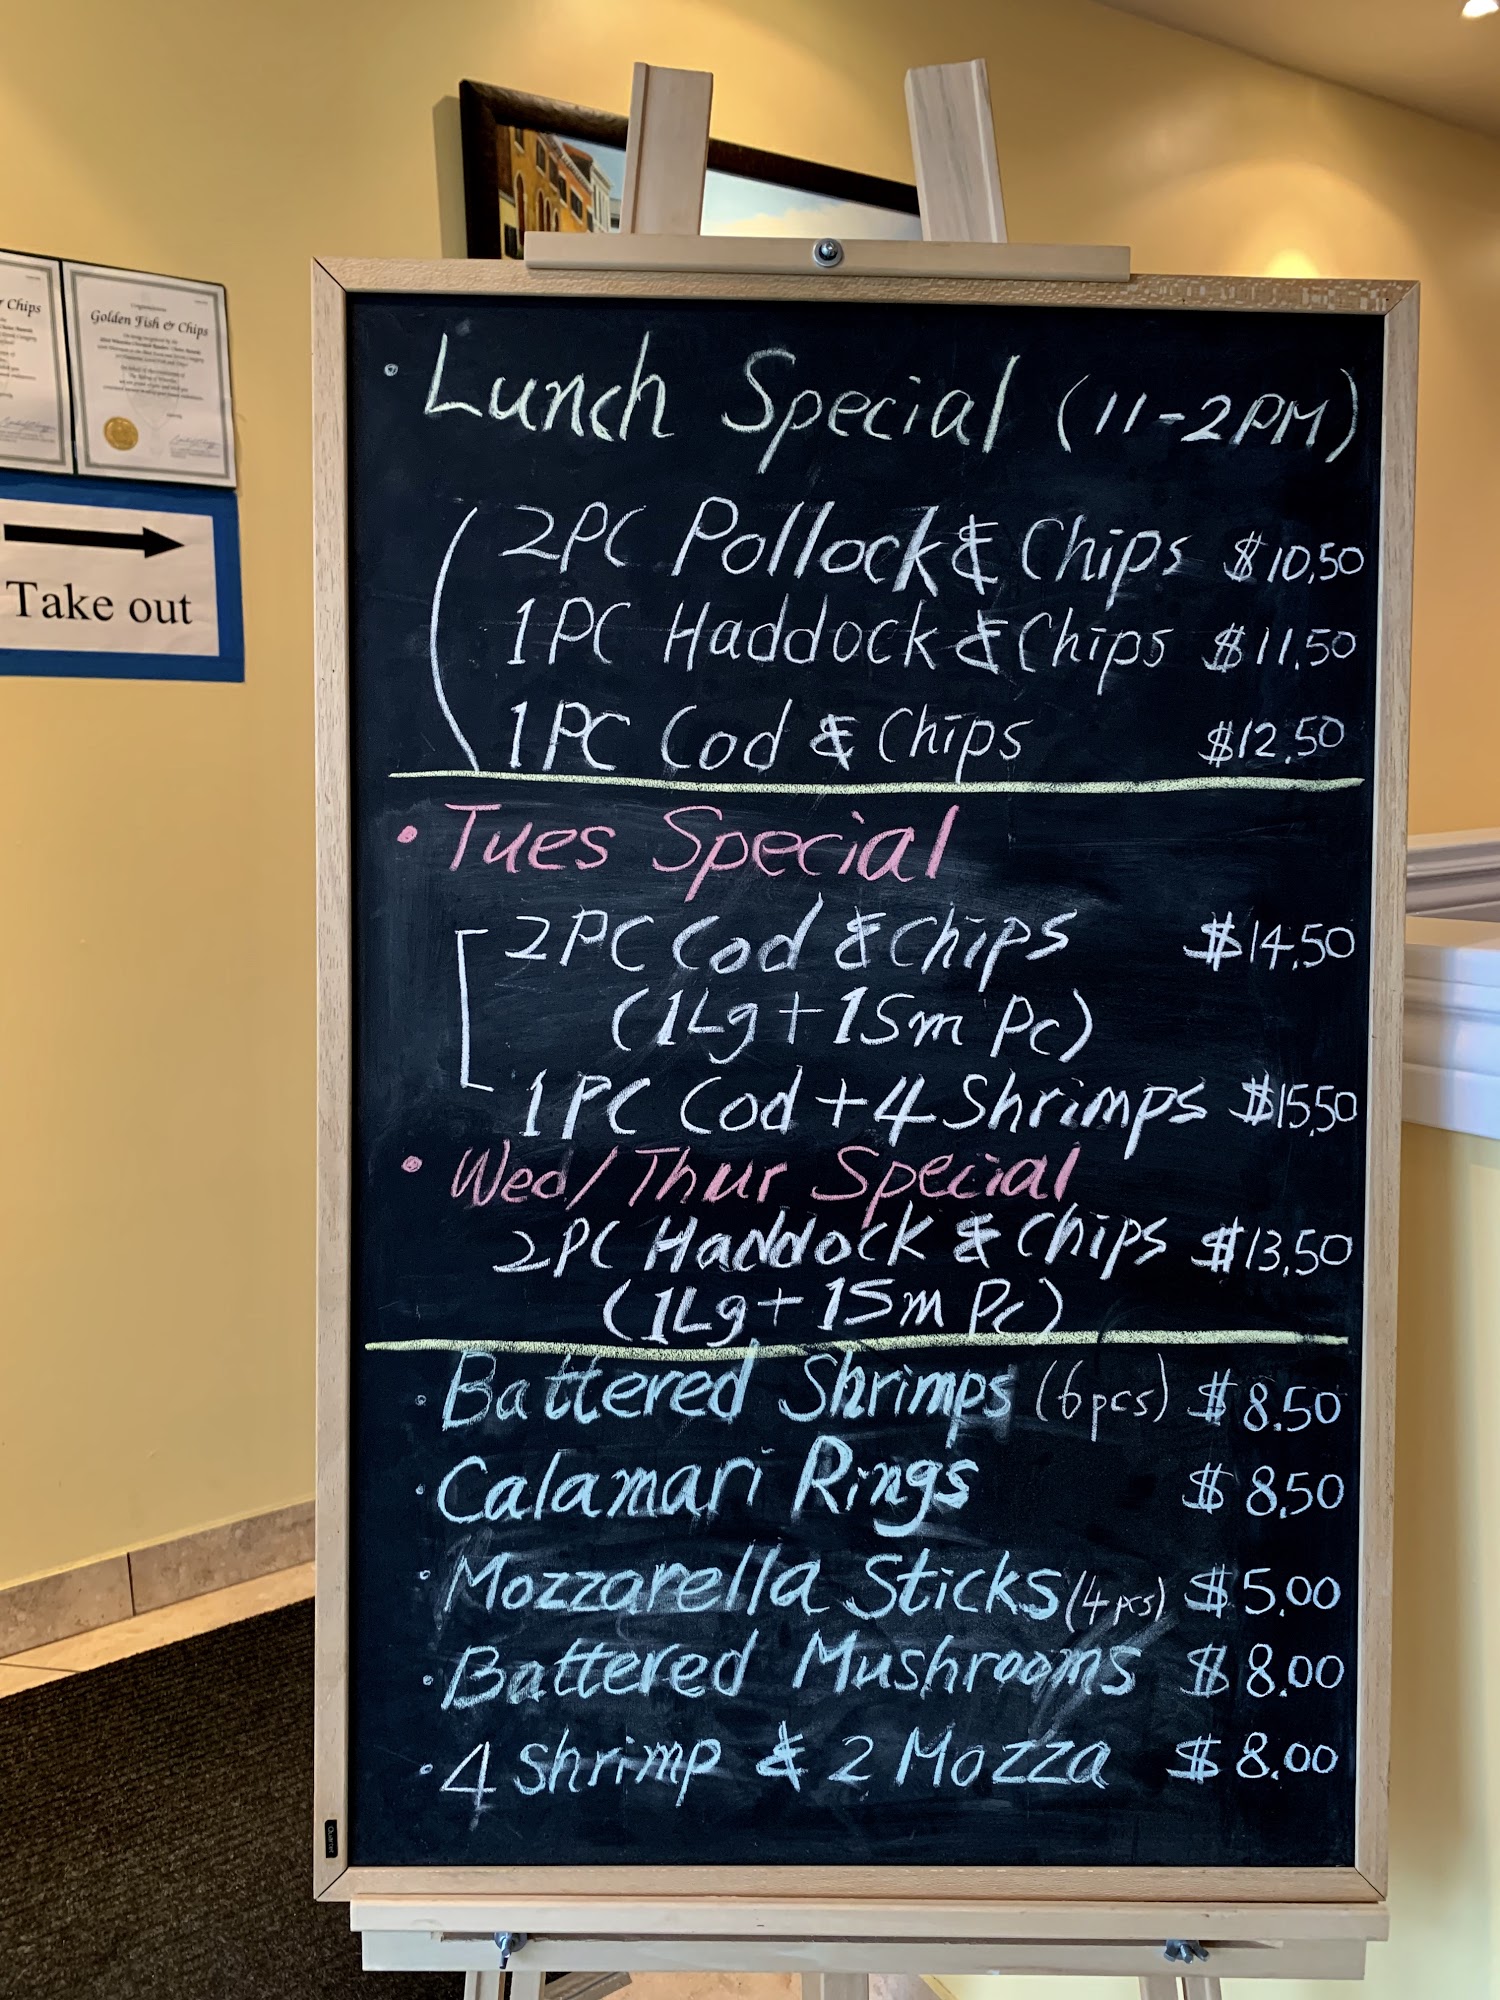 r Chips
Golden Fish & Chips
Take out
• Lunch Special (11-2PM)
2PC Pollock & Chips $10.50
1PC Haddock & Chips $11.50
1PC Cod & Chips $12.50
• Tues Special
2PC Cod & Chips $14.50
(1Lg + 1Sm Pc)
1PC Cod + 4 Shrimps $15.50
• Wed/Thur Special
2PC Haddock & Chips $13.50
(1Lg + 1Sm Pc)
• Battered Shrimps (6pcs) $8.50
• Calamari Rings $8.50
• Mozzarella Sticks (4pcs) $5.00
• Battered Mushrooms $8.00
• 4 Shrimp & 2 Mozza $8.00
Quartet